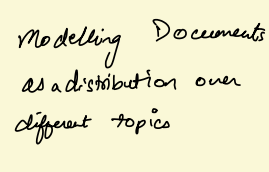 Modelling Documents
as a distribution over
different topics